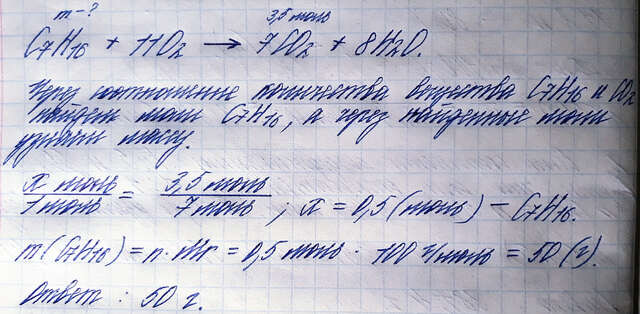 m - ? 3,5 моль
C7H16 + 11O2 → 7CO2 + 8H2O.
Через соотношение количества вещества C7H16 и CO2
найдем моли C7H16, а через найденные моли
узнаем массу.
x моль / 1 моль = 3,5 моль / 7 моль ; x = 0,5 (моль) - C7H16.
m(C7H16) = n · Mr = 0,5 моль · 100 г/моль = 50 (г).
Ответ : 50 г.